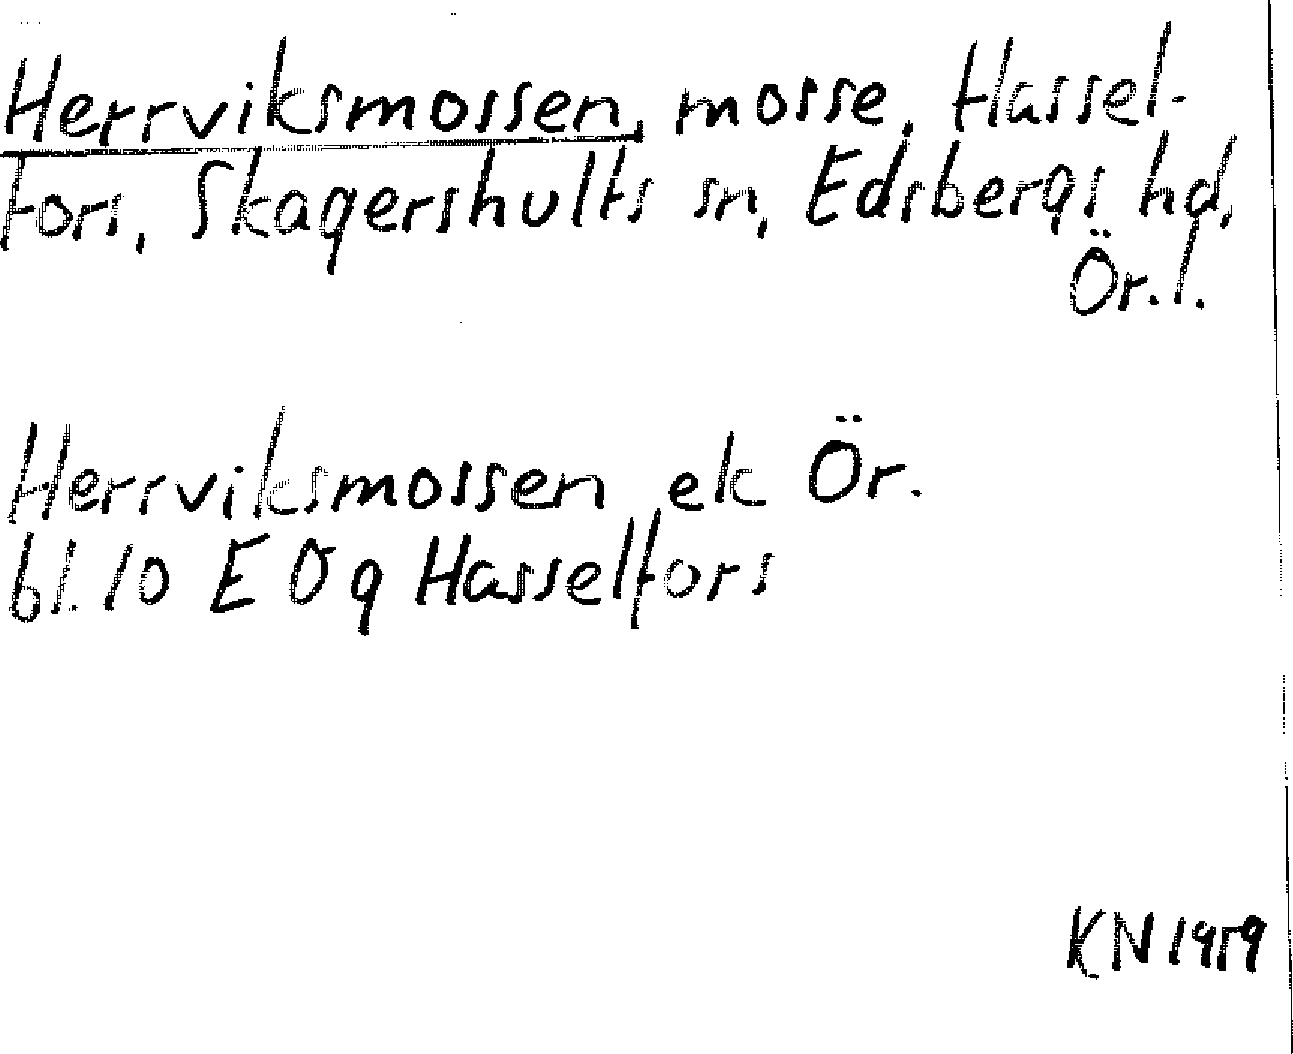 Herrviksmossen, mosse, Hassel-
fors, Skagershults sn, Edsbergs hd,
Ör. l.
Herrviksmossen ek Ör.
bl. 10 E Ög Hasselfors
KN 1959